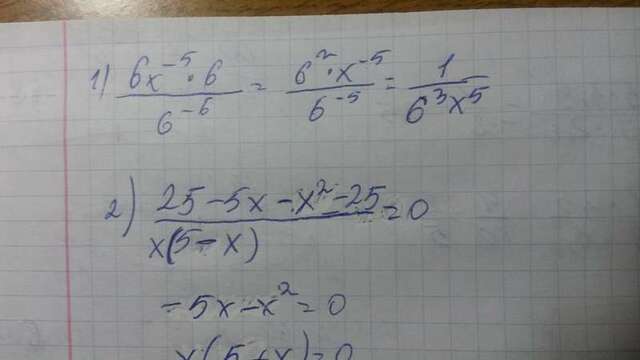 1) (6x⁻⁵·6)/6⁻⁶ = (6²·x⁻⁵)/6⁻⁵ = 1/(6³x⁵)
2) (25-5x-x²-25)/(x(5-x)) = 0
-5x-x²=0
x(5+x)=0